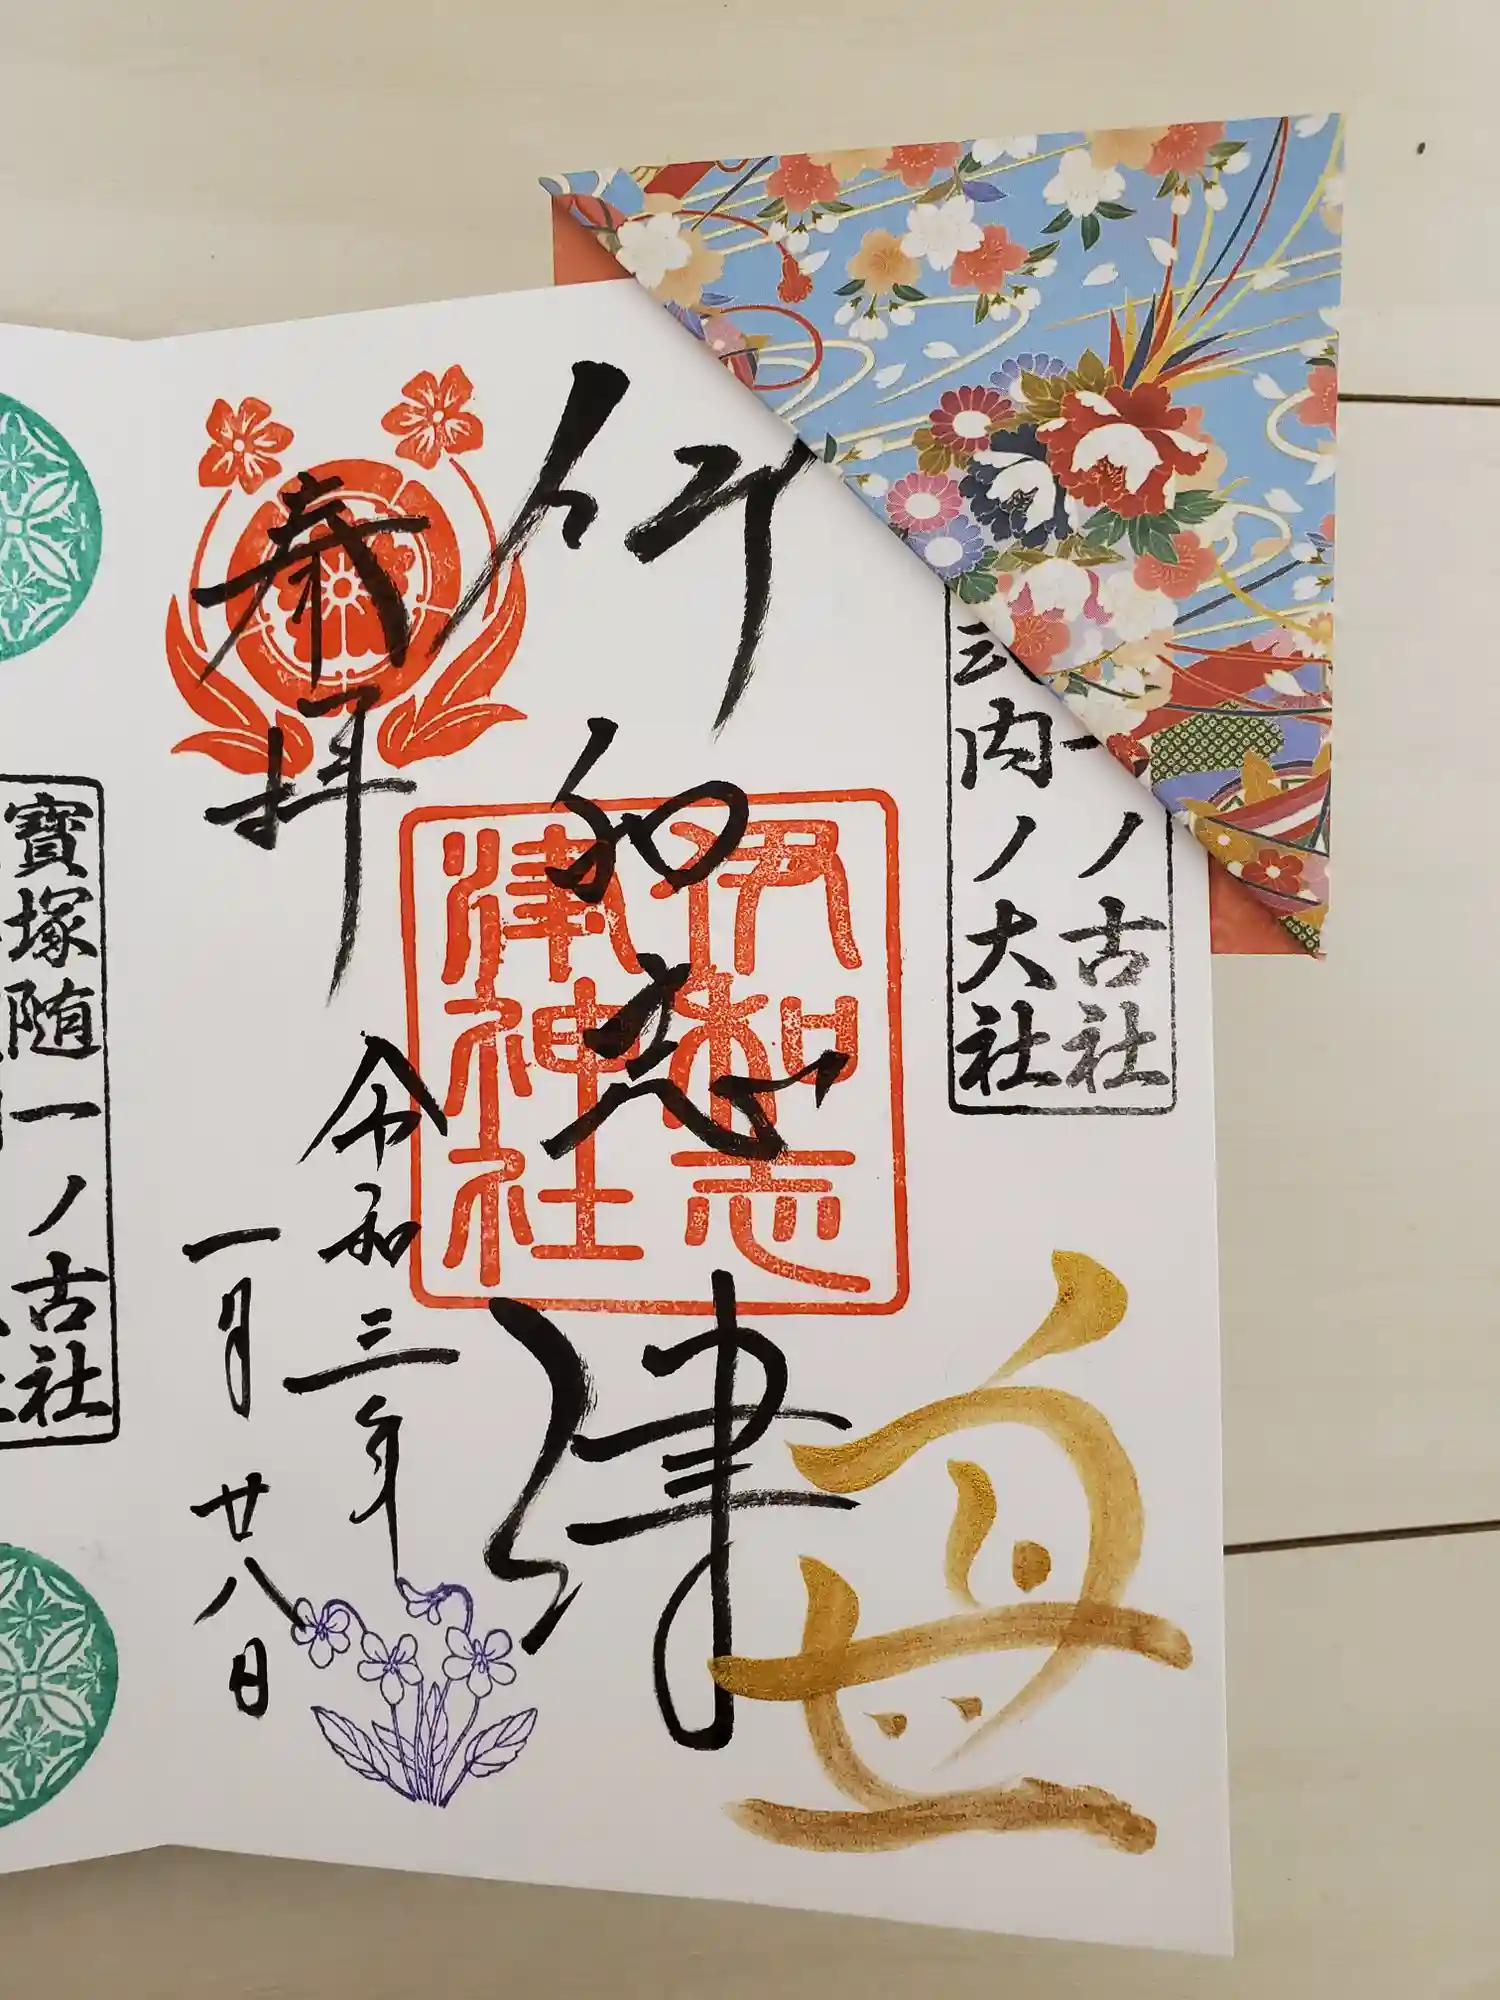 式内ノ大社
ノ古社
伊和志津
伊和志
津神社
奉拝
令和三年
一月廿八日
寶塚随一ノ古社